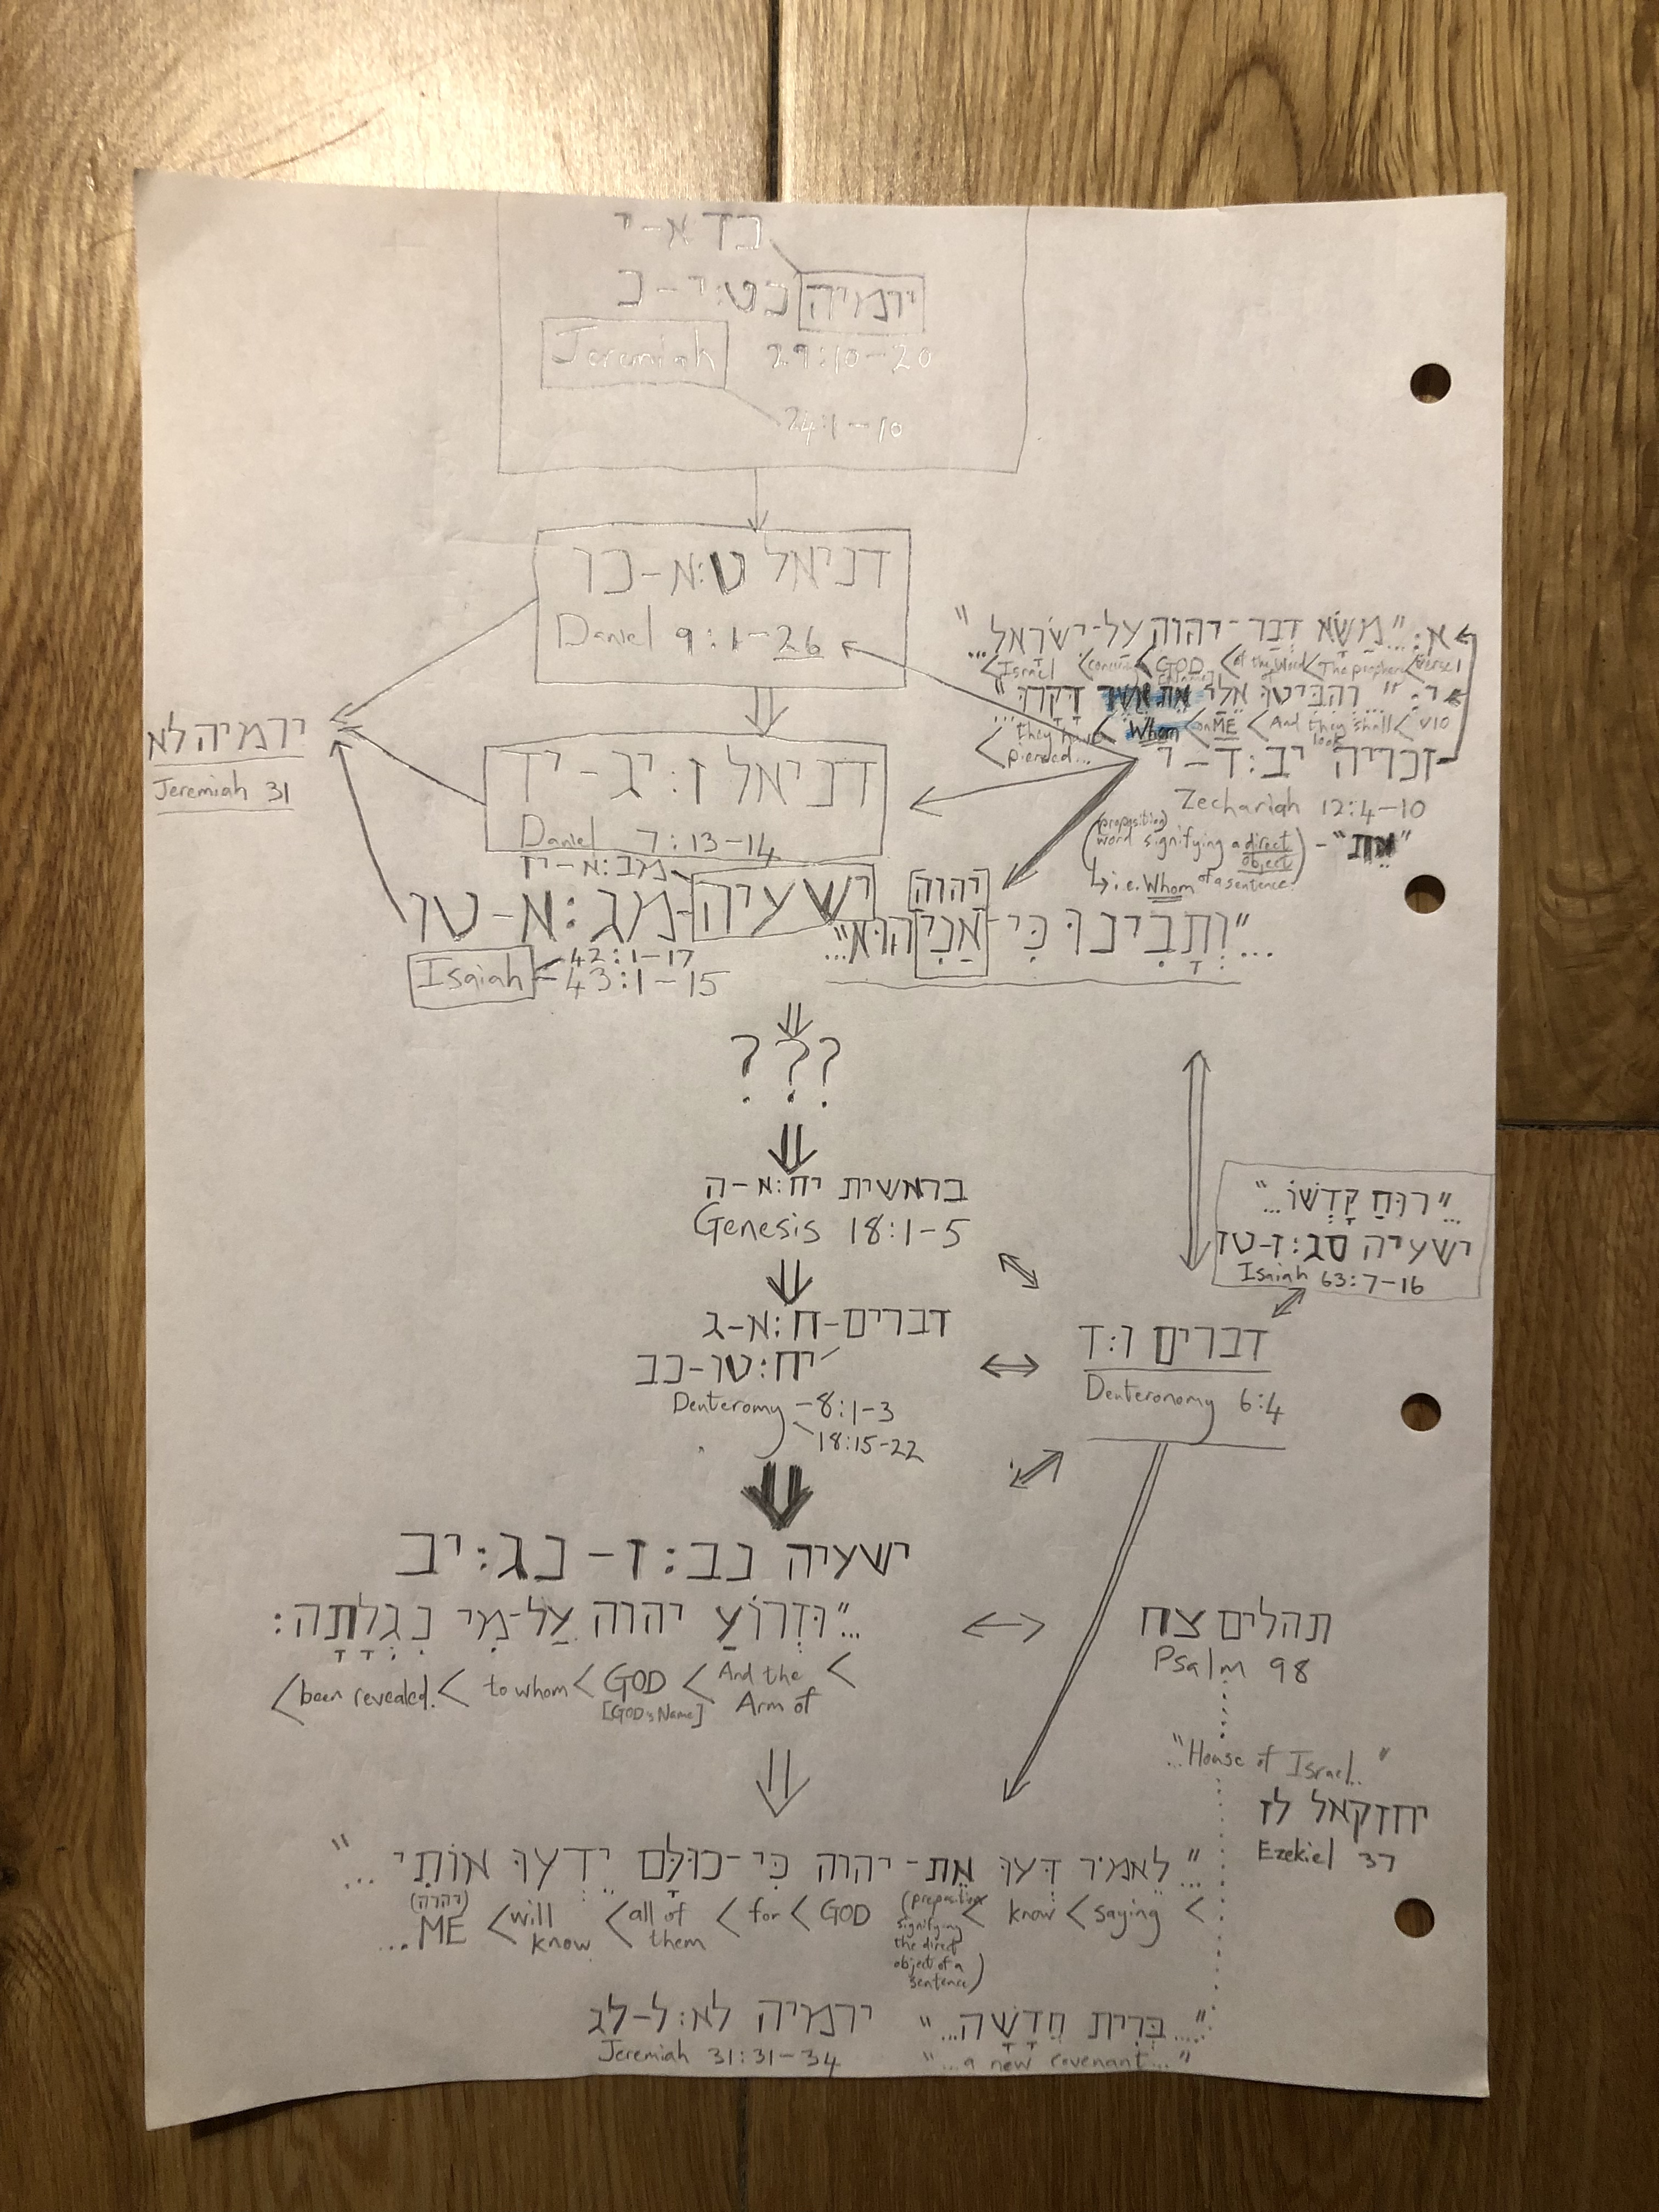 כד א-י
ירמיה כט:י-כ
Jeremiah 29:10-20
24:1-10
דניאל ט:א-כו
Daniel 9:1-26
א: "...מַשָּׂא דְבַר-יהוה עַל-יִשְׂרָאֵל..."
<Israel <GOD <of the Word <The prophecy <Verse 1
י: "...וְהִבִּיטוּ אֵלַי אֵת אֲשֶׁר דָּקָרוּ..."
<they have pierced... <Whom <on ME <And they shall look <V10
זכריה יב:ד-י
Zechariah 12:4-10
(preposition)
(word signifying a direct object) - "אֵת"
↳ i.e. Whom of a sentence.
ירמיה לא
Jeremiah 31
דניאל ז:יג-יד
Daniel 7:13-14
מב:א-יז
ישעיה-מג:א-טו
Isaiah 42:1-17
43:1-15
יהוה
"...וְתָבִינוּ כִּי-אֲנִי הוּא..."
???
בראשית יח:א-ה
Genesis 18:1-5
"...רוּחַ קָדְשׁוֹ..."
ישעיה סג:ז-טז
Isaiah 63:7-16
דברים-ח:א-ג
יח:טו-כב
Deuteromy -8:1-3
18:15-22
דברים ו:ד
Deuteronomy 6:4
ישעיה נב:ז-נג:יב
"...וּזְרוֹעַ יהוה עַל-מִי נִגְלָתָה:
<been revealed. < to whom < GOD < And the Arm of <
[GOD's Name]
תהלים צח
Psalm 98
"...House of Israel..."
יחזקאל לז
Ezekiel 37
"...לֵאמֹר דְּעוּ אֶת-יהוה כִּי-כוּלָּם יֵדְעוּ אוֹתִי..."
(יהוה)
...ME <will know <all of them <for <GOD (preposition signifying the direct object of a sentence) < know < saying <
"...בְּרִית חֲדָשָׁה..." ירמיה לא:ל-לג
Jeremiah 31:31-34 "...a new covenant..."